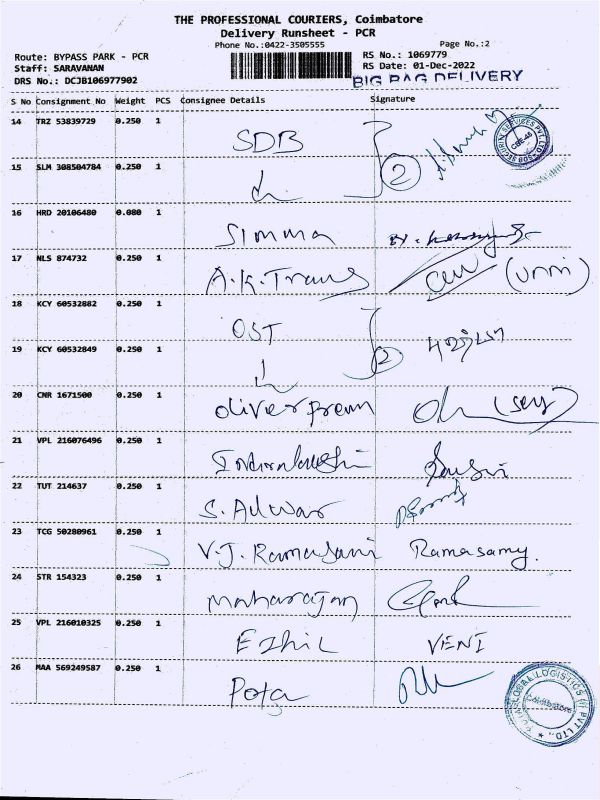 THE PROFESSIONAL COURIERS, Coimbatore
Delivery Runsheet - PCR
Phone No.:0422-3505555
Page No.:2
Route: BYPASS PARK - PCR
RS No.: 1069779
Staff: SARAVANAN
RS Date: 01-Dec-2022
DRS No.: DCJB106977902
BIG BAG DELIVERY
S No Consignment No Weight PCS Consignee Details Signature
14 TRZ 53839729 0.250 1 SDB 2
SDB SECURIE SERVICES PVT. LTD. CBE-45
15 SLM 308504784 0.250 1
16 HRD 20106480 0.080 1 Simma
17 NLS 874732 0.250 1 A.K.Trans (Unni)
18 KCY 60532882 0.250 1 OST 2
19 KCY 60532849 0.250 1
20 CNR 1671500 0.250 1 oliver prem
21 VPL 216076496 0.250 1
22 TUT 214637 0.250 1 S. Alwar
23 TCG 50280961 0.250 1 V.J. Ramasami Ramasamy.
24 STR 154323 0.250 1 Maharajan
25 VPL 216010325 0.250 1 Ezhil VENI
26 MAA 569249587 0.250 1 Pota
GLOBAL LOGISTICS (I) PVT LTD., Coimbatore